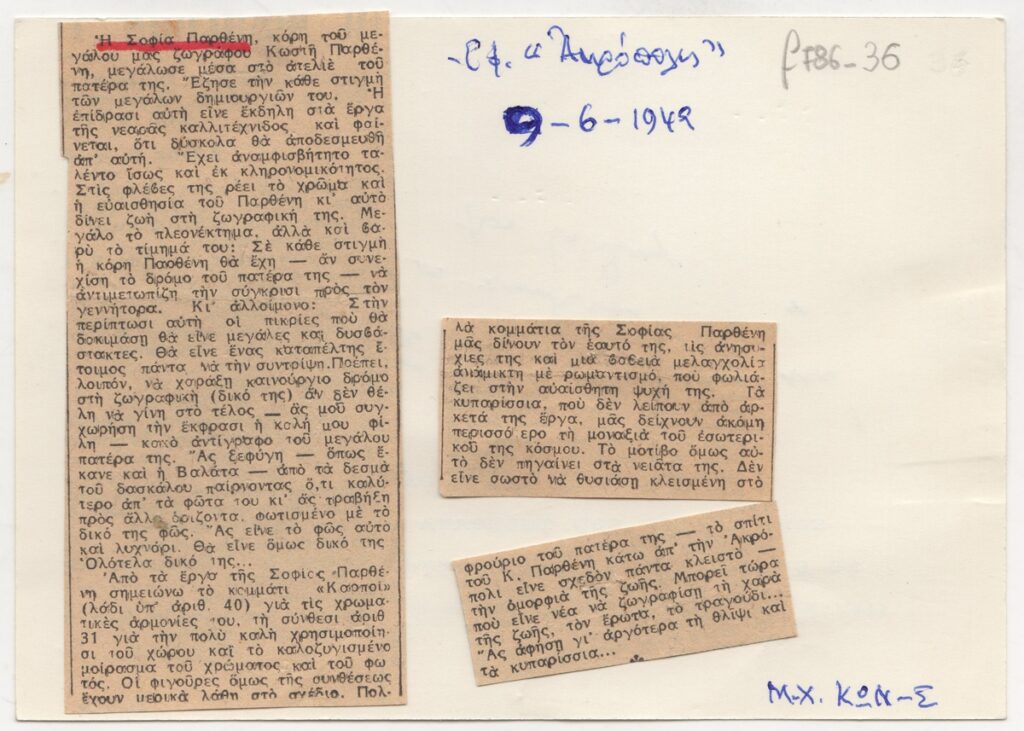 Ἡ Σοφία Παρθένη, κόρη τοῦ με-
γάλου μας ζωγράφου Κωστῆ Παρθέ-
νη, μεγάλωσε μέσα στὸ ἀτελιὲ τοῦ
πατέρα της. Ἔζησε τὴν κάθε στιγμὴ
τῶν μεγάλων δημιουργιῶν του. Ἡ
ἐπίδρασι αὐτὴ εἶνε ἔκδηλη στὰ ἔργα
τῆς νεαρᾶς καλλιτέχνιδος καὶ φαί-
νεται, ὅτι δύσκολα θὰ ἀποδεσμευθῆ
ἀπ' αὐτή. Ἔχει ἀναμφισβήτητο τα-
λέντο ἴσως καὶ ἐκ κληρονομικότητος.
Στὶς φλέβες της ρέει τὸ χρῶμα καὶ
ἡ εὐαισθησία τοῦ Παρθένη κι' αὐτὸ
δίνει ζωὴ στὴ ζωγραφική της. Με-
γάλο τὸ πλεονέκτημα, ἀλλὰ καὶ βα-
ρὺ τὸ τίμημά του: Σὲ κάθε στιγμὴ
ἡ κόρη Παρθένη θὰ ἔχη — ἄν συνε-
χίση τὸ δρόμο τοῦ πατέρα της — νὰ
ἀντιμετωπίζη τὴν σύγκρισι πρὸς τὸν
γεννήτορα. Κι' ἀλλοίμονο: Στὴν
περίπτωσι αὐτὴ οἱ πικρίες ποὺ θὰ
δοκιμάση θὰ εἶνε μεγάλες καὶ δυσβά-
στακτες. Θὰ εἶνε ἕνας καταπέλτης ἕ-
τοιμος πάντα νὰ τὴν συντρίψη. Πρέπει,
λοιπόν, νὰ χαράξη καινούργιο δρόμο
στὴ ζωγραφικὴ (δικό της) ἂν δὲν θέ-
λη νὰ γίνη στὸ τέλος — ἄς μοῦ συγ-
χωρήση τὴν ἔκφρασι ἡ καλή μου φί-
λη — κακὸ ἀντίγραφο τοῦ μεγάλου
πατέρα της. Ἄς ξεφύγη — ὅπως ἔ-
κανε καὶ ἡ Βαλάτα — ἀπὸ τὰ δεσμὰ
τοῦ δασκάλου παίρνοντας ὅ,τι καλύ-
τερο ἀπ' τὰ φῶτα του κι' ἄς τραβήξη
πρὸς ἄλλο ὁρίζοντα, φωτισμένο μὲ τὸ
δικό της φῶς. Ἄς εἶνε τὸ φῶς αὐτὸ
καὶ λυχνάρι. Θὰ εἶνε ὅμως δικό της
Ὁλότελα δικό της...
Ἀπὸ τὰ ἔργα τῆς Σοφίας Παρθέ-
νη σημειώνω τὸ κομμάτι «Καρποὶ»
(λάδι ὑπ' ἀριθ. 40) γιὰ τὶς χρωμα-
τικὲς ἁρμονίες του, τὴ σύνθεσι ἀριθ
31 γιὰ τὴν πολὺ καλὴ χρησιμοποίη-
σι τοῦ χώρου καὶ τὸ καλοζυγισμένο
μοίρασμα τοῦ χρώματος καὶ τοῦ φω-
τός. Οἱ φιγοῦρες ὅμως τῆς συνθέσεως
ἔχουν μερικὰ λάθη στὸ σχέδιο. Πολ-
Ἐφ. "Ἀκρόπολις"
9-6-1942
f786-36
λὰ κομμάτια τῆς Σοφίας Παρθένη
μᾶς δίνουν τὸν ἑαυτό της, τὶς ἀνησυ-
χίες της καὶ μιὰ βαθειὰ μελαγχολία
ἀνάμικτη μὲ ρωμαντισμό, ποὺ φωλιά-
ζει στὴν εὐαίσθητη ψυχή της. Τὰ
κυπαρίσσια, ποὺ δὲν λείπουν ἀπὸ ἀρ-
κετὰ της ἔργα, μᾶς δείχνουν ἀκόμη
περισσότερο τὴ μοναξιὰ τοῦ ἐσωτερι-
κοῦ της κόσμου. Τὸ μοτίβο ὅμως αὐ-
τὸ δὲν πηγαίνει στὰ νειᾶτα της. Δὲν
εἶνε σωστὸ νὰ θυσιάση κλεισμένη στὸ
φρούριο τοῦ πατέρα της — τὸ σπίτι
τοῦ Κ. Παρθένη κάτω ἀπ' τὴν Ἀκρό-
πολι εἶνε σχεδὸν πάντα κλειστὸ —
τὴν ὀμορφιὰ τῆς ζωῆς. Μπορεῖ τώρα
ποὺ εἶνε νέα νὰ ζωγραφίση τὴ χαρὰ
τῆς ζωῆς, τὸν ἔρωτα, τὸ τραγούδι...
Ἄς ἀφήση γι' ἀργότερα τὴ θλίψι καὶ
τὰ κυπαρίσσια...
Μ.Χ. ΚΩΝ-Σ